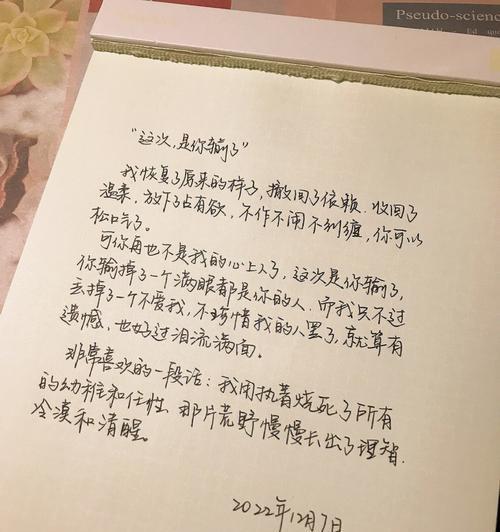 Pseudo-scien
“这次,是你输了”
我恢复了原来的样子,撤回了依赖,收回了
温柔,放下了占有欲,不作不闹不纠缠,你可以
松口气了。
可你再也不是我的心上人了,这次是你输了,
你输掉了一个满眼都是你的人,而我只不过
丢掉了一个不爱我,不珍惜我的人罢了,就算有
遗憾,也好过泪流满面。
非常喜欢的一段话:我用执着烧死了所有
的幼稚和任性,那片荒野慢慢长出了理智,
冷漠和清醒。
2022年12月7日